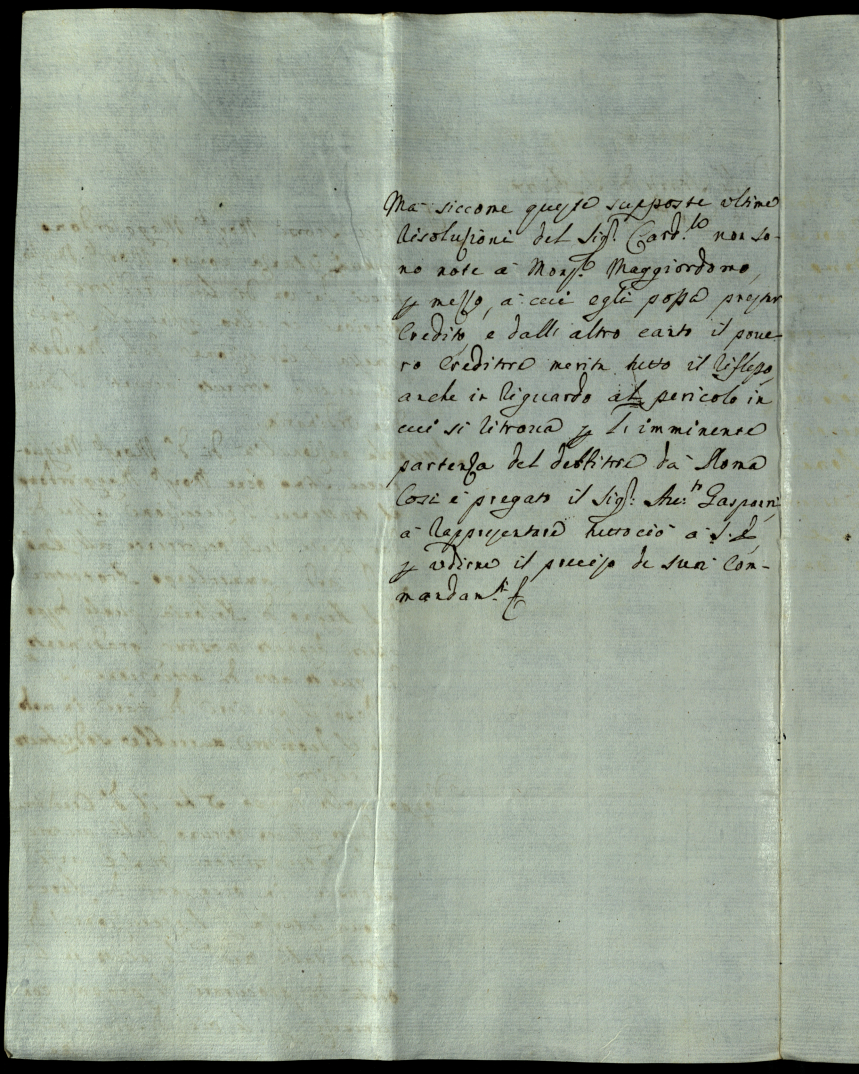 Ma siccome queste supposte ultime
risoluzioni del Sig.r Card.le non so-
no note à Mons.r Maggiordomo,
p mezzo, à cui egli possa prestar
credito, e dall altro canto il pove-
ro Creditore merita tutto il riflesso,
anche in riguardo al pericolo in
cui si ritrova p l'imminente
partenza del debitore da Roma
Così è pregato il Sig.r Gasparri,
à rappresentare tuttociò à S. E,
p udirne il preciso de suoi Com-
mandam.ti